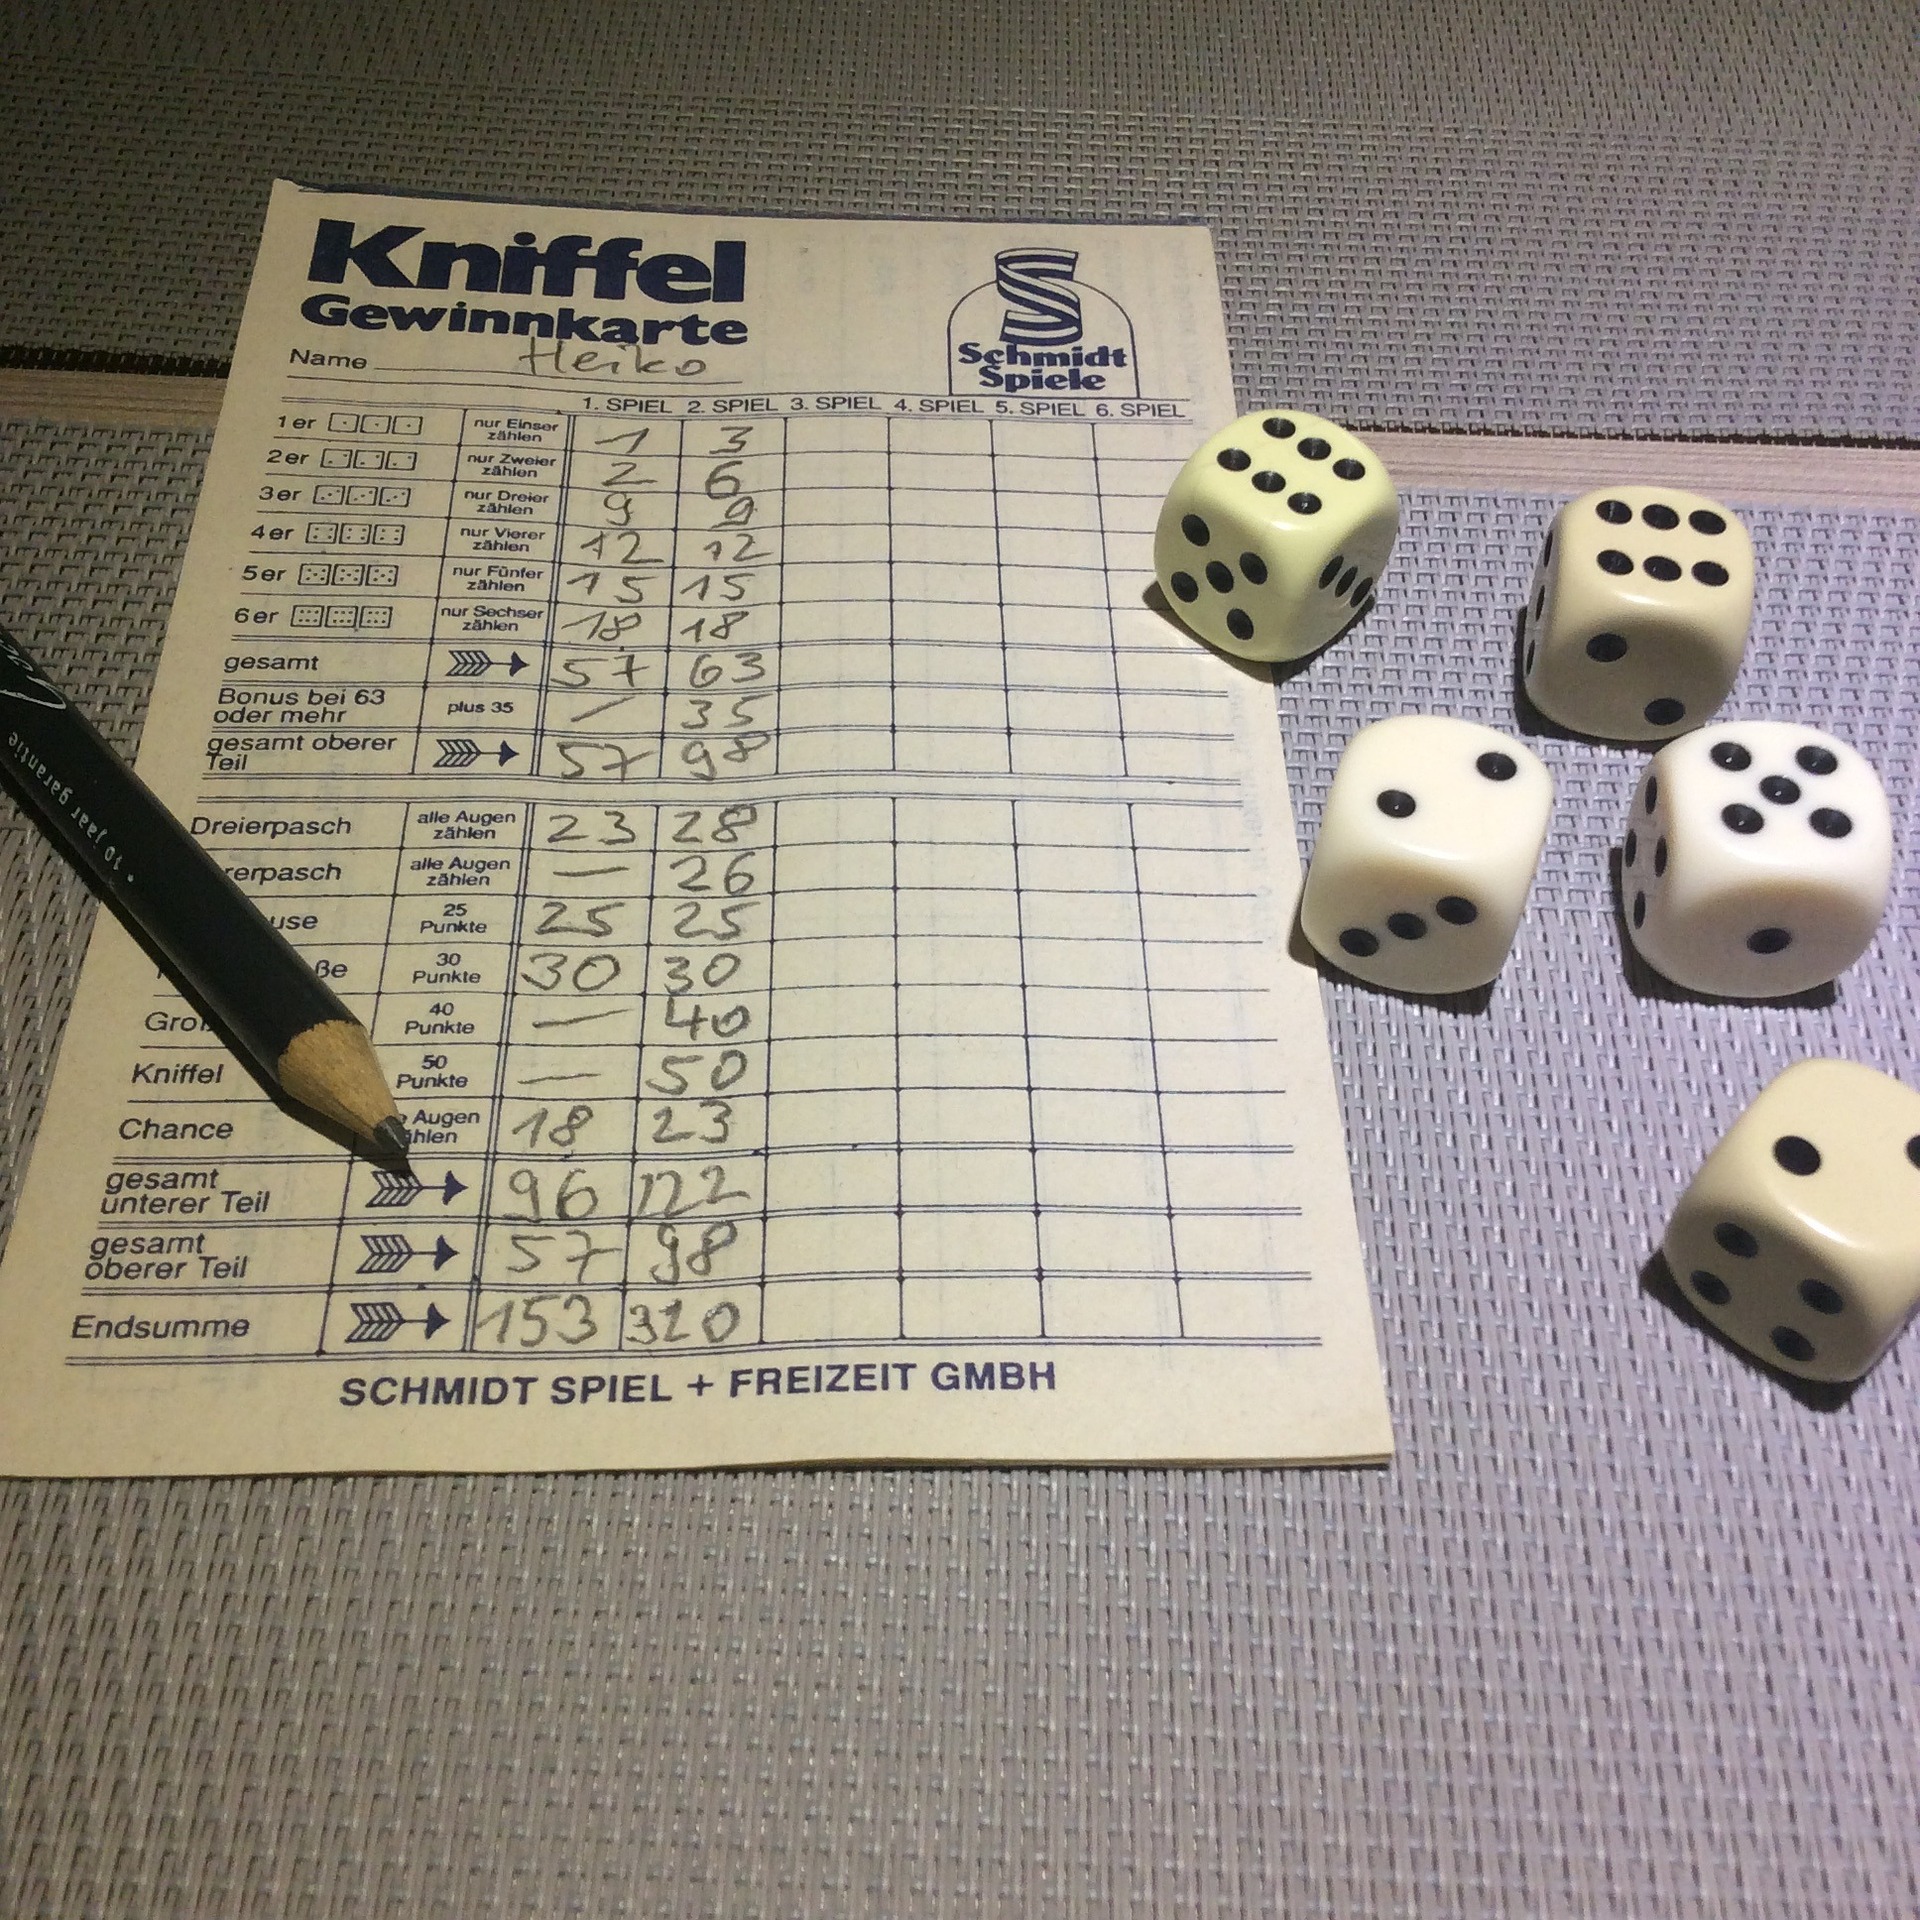 Kniffel
Gewinnkarte
Schmidt
Spiele
Name Heiko
1. SPIEL 2. SPIEL 3. SPIEL 4. SPIEL 5. SPIEL 6. SPIEL
1er nur Einser zählen 1 3
2er nur Zweier zählen 2 6
3er nur Dreier zählen 9 9
4er nur Vierer zählen 12 12
5er nur Fünfer zählen 15 15
6er nur Sechser zählen 18 18
gesamt 57 63
Bonus bei 63 oder mehr plus 35 / 35
gesamt oberer Teil 57 98
Dreierpasch alle Augen zählen 23 28
rerpasch alle Augen zählen — 26
use 25 Punkte 25 25
ße 30 Punkte 30 30
Gro 40 Punkte — 40
Kniffel 50 Punkte — 50
Chance Augen hlen 18 23
gesamt unterer Teil 96 122
gesamt oberer Teil 57 98
Endsumme 153 320
SCHMIDT SPIEL + FREIZEIT GMBH
• 10 jaar garantie